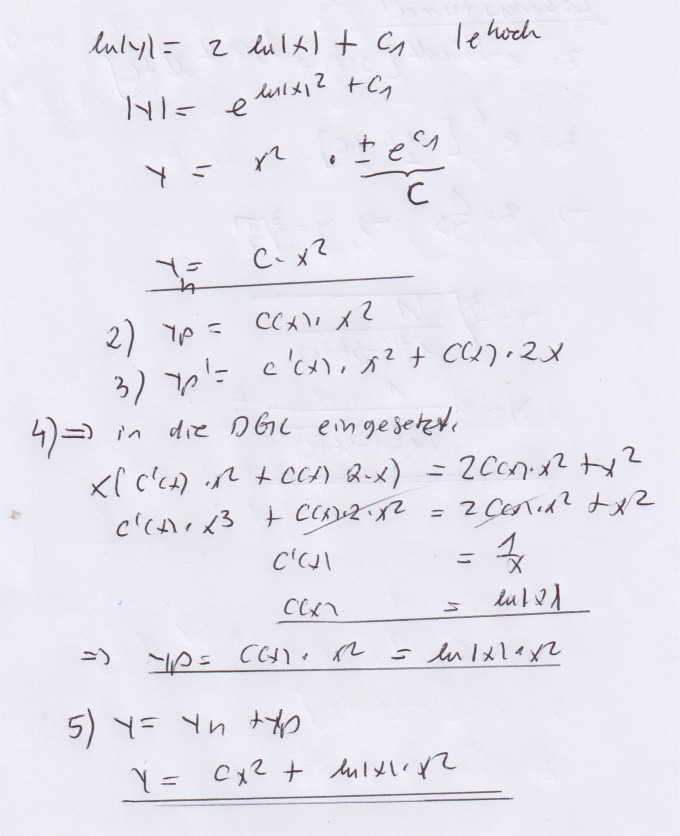 ln|y| = 2 ln|x| + C1 | e hoch
|y| = e^(ln|x|^2 + C1)
y = x^2 · ± e^(C1)
C
yh = C · x^2
2) yp = C(x) · x^2
3) yp' = C'(x) · x^2 + C(x) · 2x
4) => in die DGL eingesetzt.
x(C'(x) · x^2 + C(x) 2 · x) = 2C(x) · x^2 + x^2
C'(x) · x^3 + C(x) · 2 · x^2 = 2C(x) · x^2 + x^2
C'(x) = 1/x
C(x) = ln|x|
=> yp = C(x) · x^2 = ln|x| · x^2
5) y = yh + yp
y = Cx^2 + ln|x| · x^2